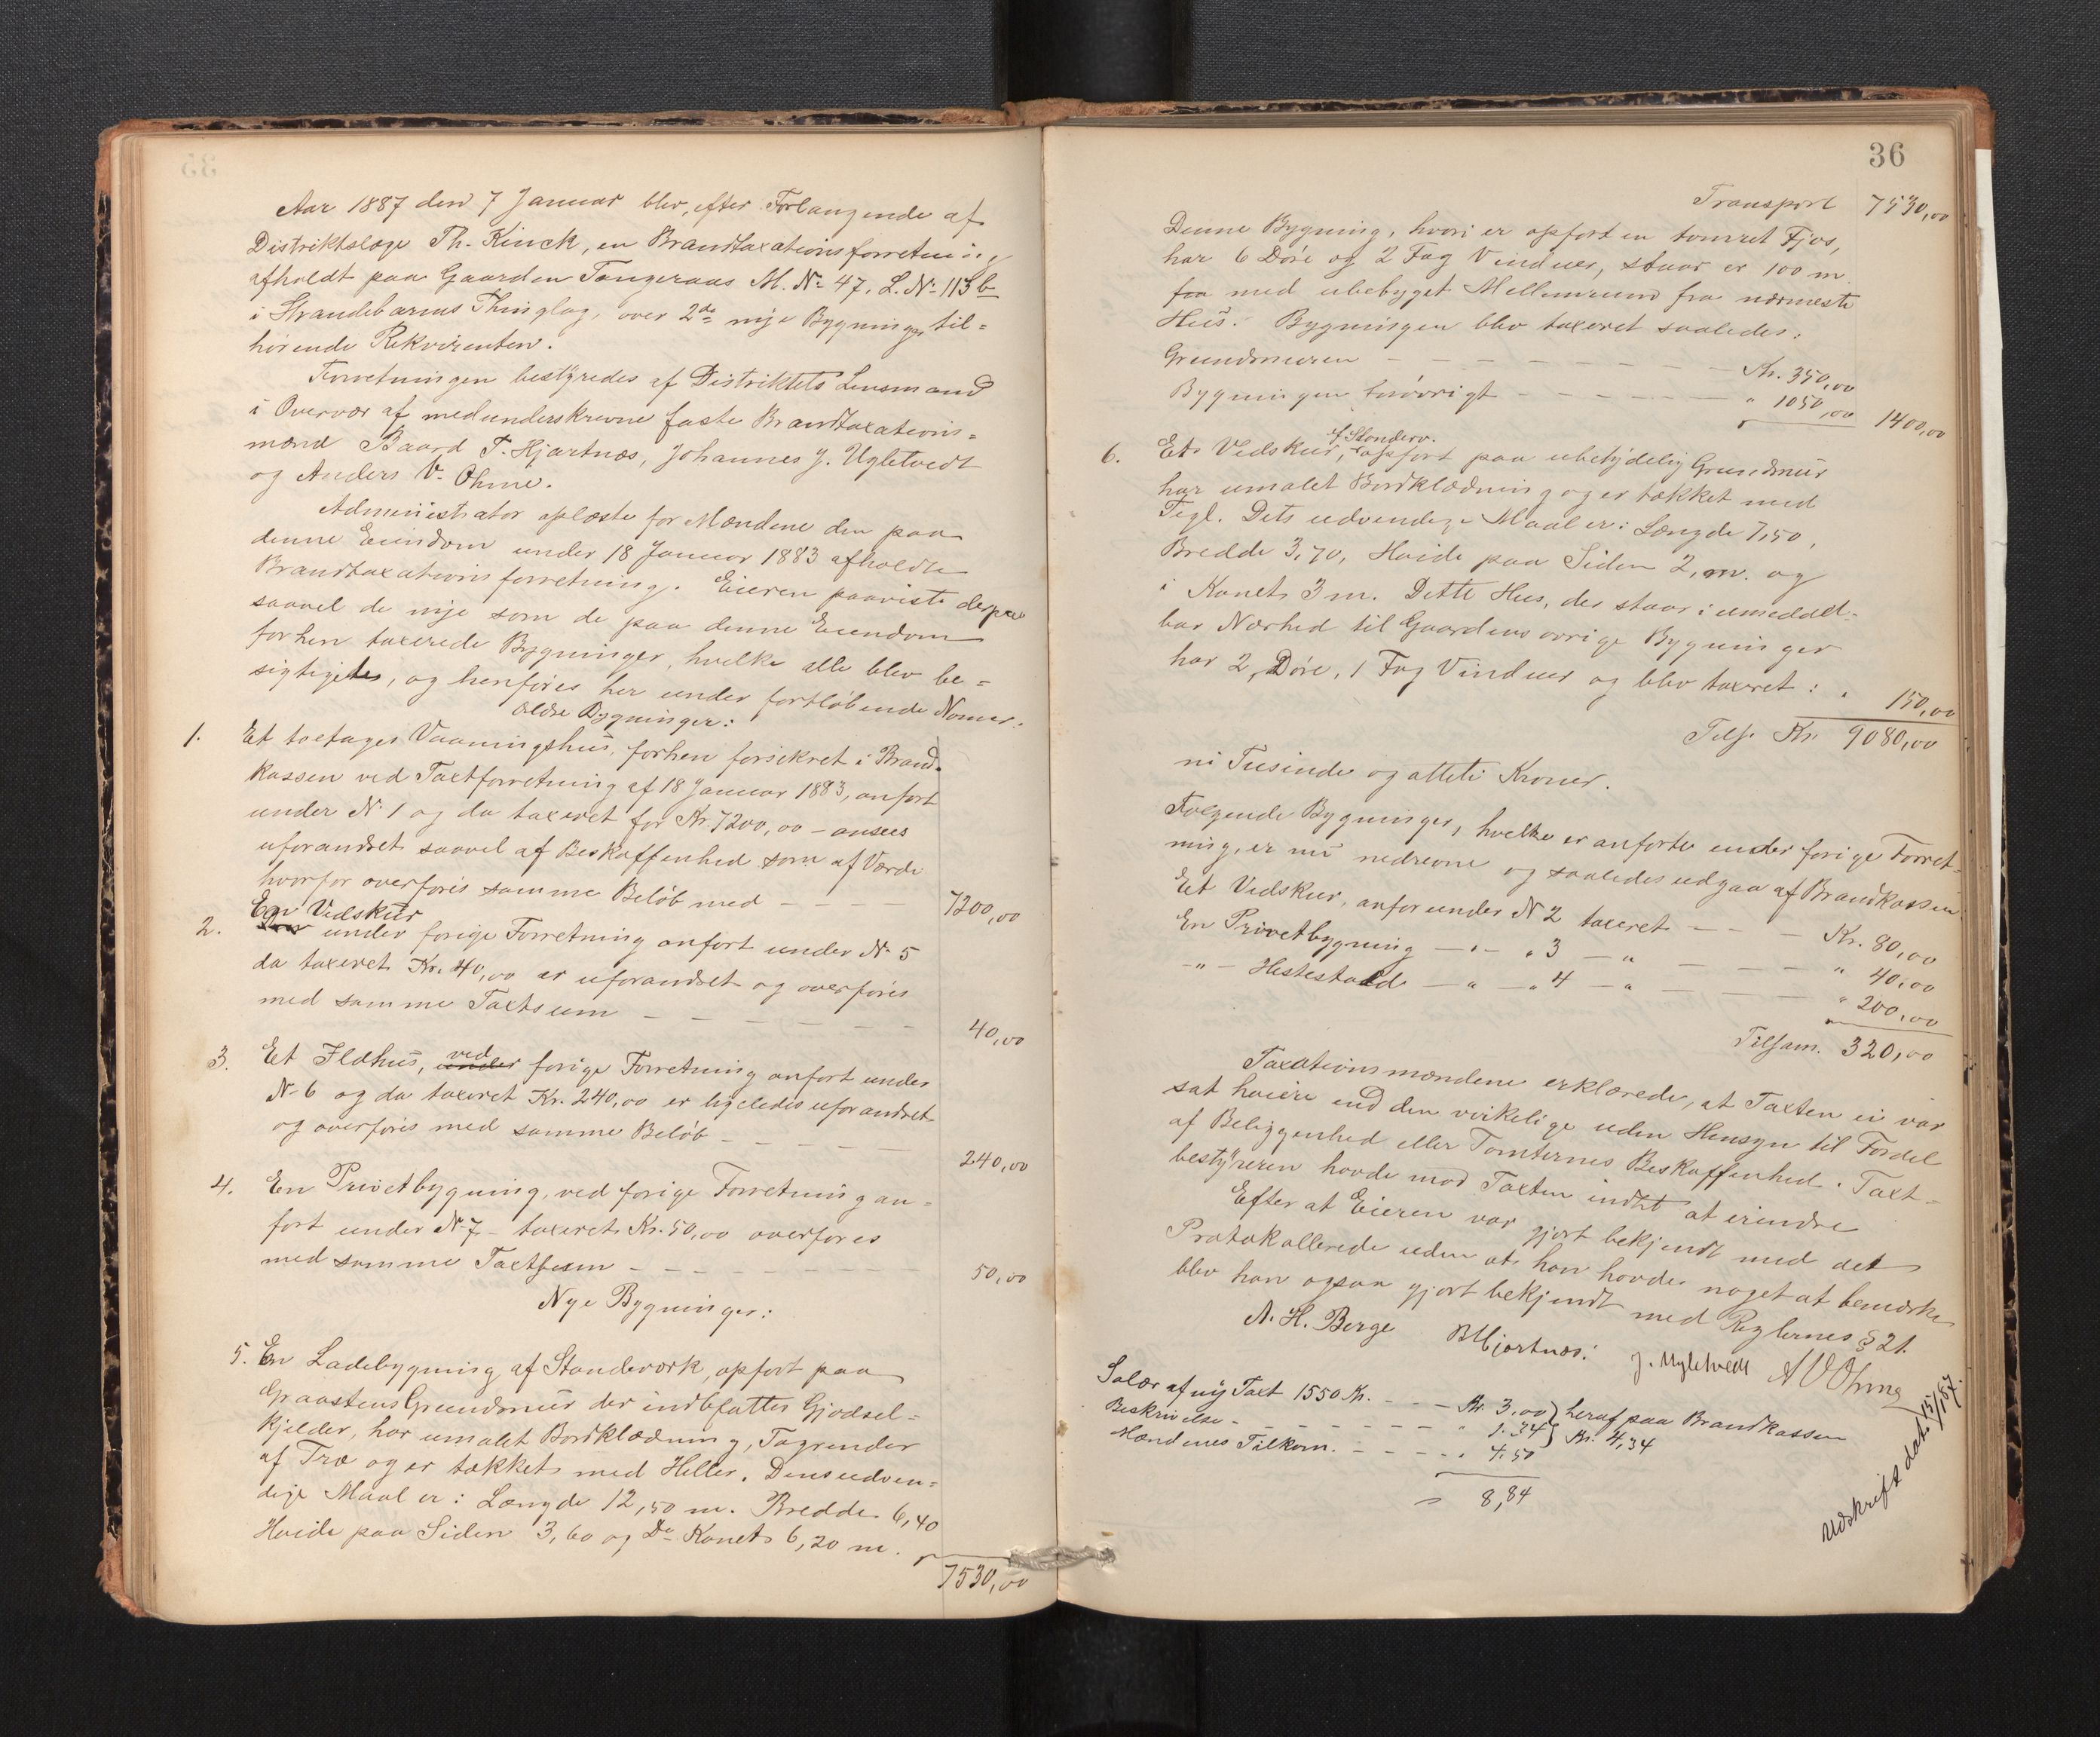 Aar 1887 den 7 Januar blev, efter Forlangende af
Distriktslæge Th. Kinck, en Brandtaxationsforretning
afholdt paa Gaarden Tangeraas M. No 47. L. No 113 b
i Strandebarms Thinglag, over 2de nye Bygninger til-
hørende Rekvirenten.
Forretningen bestyredes af Distriktets Lensmand
i Overvær af medunderskrevne faste Brandtaxations-
mænd Baard T. Hjartnæs, Johannes J. Ugletvedt
og Anders V. Ohme.
Administrator oplæste for Mændene den paa
denne Eiendom under 18 Januar 1883 afholdte
Brandtaxationsforretning. Eieren paaviste derpaa
saavel de nye som de paa denne Eiendom
forhen taxerede Bygninger, hvilke alle blev be-
sigtigede, og henføres her under fortløbende Nomer.
Ældre Bygninger:
1. Et toetages Vaaningshus, forhen forsikret i Brand-
kassen ved Taxtforretning af 18 Januar 1883, anført
under No 1 og da taxeret for Kr. 7200,00 - ansees
uforandret saavel af Beskaffenhed som af Værdi
hvorfor overføres samme Beløb med - - - - 7200,00
2. En Vedskur
under forige Forretning anført under No 5
da taxeret Kr. 40,00 er uforandret og overføres
med samme Taxtsum - - - - - - 40,00
3. Et Ildhus, under ved forige Forretning anført under
No 6 og da taxeret Kr. 240,00 er ligeledes uforandret
og overføres med samme Beløb - - - - - 240,00
4. En Privetbygning, ved forige Forretning an-
ført under No 7 - taxeret Kr. 50,00 overføres
med samme Taxtsum - - - - - - - - 50,00
Nye Bygninger:
5. En Ladebygning af Standeværk, opført paa
Graastens Grundmur der indbefatter Gjødsel-
kjelder, har umalet Bordklædning, Tagrender
af Træ og er tækket med Heller. Dens udven-
dige Maal er: Længde 12,50 m. Bredde 6,40
Høide paa Siden 3,60 og Do Rønet 6,20 m.
7530,00
36
Transport 7530,00
Denne Bygning, hvori er opført en tømret Fjøs,
har 6 Døre og 2 Fag Vinduer, staar er 100 m
faa med ubebygget Mellemrum fra nærmeste
Hus. Bygningen blev taxeret saaledes:
Grundmuren - - - - - - - - Kr. 350,00
Bygningen forøvrigt - - - - - - " 1050,00 1400,00
6. Et Vedskur, af Standerv. opført paa ubetydelig Grundmur
har umalet Bordklædning og er tækket med
Tegl. Dets udvendige Maal er: Længde 7,50,
Bredde 3,70, Høide paa Siden 2, m. og
i Rønet 3 m. Dette Hus, der staar i umiddel-
bar Nærhed til Gaardens øvrige Bygninger
har 2 Døre, 1 Fag Vinduer og blev taxeret: " 150,00
Tils. Kr. 9080,00
ni Tusinde og otteti Kroner.
Følgende Bygninger, hvilke er anførte under forige Forret-
ning, er nu nedrevne og saaledes udgaa af Brandkassen
Et Vedskur, anfør under No 2 taxeret - - - - Kr. 80,00
En Privetbygning - " - " 3 - " - - - - " 40,00
- " - Hestestald - " - " 4 - " - - - - " 200,00
Tilsam. 320,00
Taxationsmændene erklærede, at Taxten ei var
sat høiere end den virkelige uden Hensyn til Fordel
af Beliggenhed eller Tomternes Beskaffenhed. Taxt-
bestyreren havde mod Taxten indtet at erindre
Efter at Eieren var gjort bekjendt med det
Protokollerede uden at han havde noget at bemærke
blev han ogsaa gjort bekjendt med Reglernes § 21.
A. H. Berge BHjartnæs. J. Ugletvedt AVOhme
Salær af ny Taxt 1550 Kr. - - - Kr. 3,00 } heraf paa Brandkassen
Beskrivelse - - - - - - - " 1.34 } Kr. 4,34
Mændenes Tilkom. - - - - - " 4,50
8,84
Udskrift dat. 15/1 87.